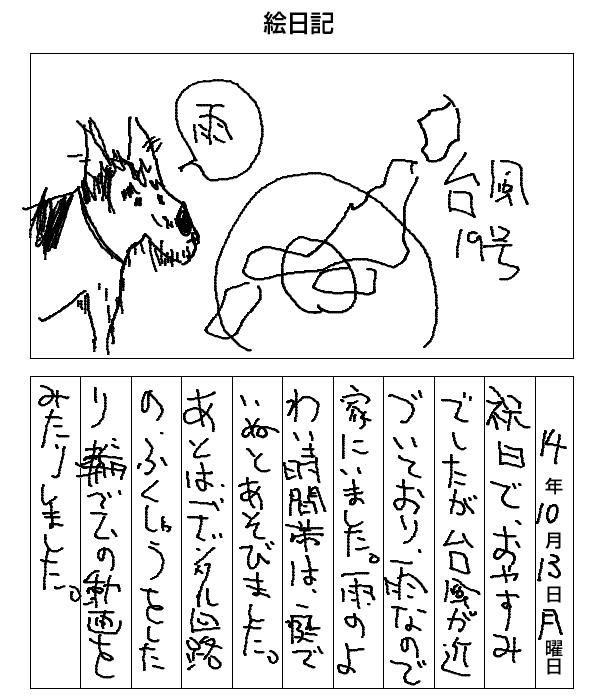 絵日記
雨
台風
19号
14年10月13日月曜日
祝日で、おやすみ
でしたが台風が近
づいており、雨なので
家にいました。雨のよ
わい時間帯は、庭で
いぬとあそびました。
あとは、デジタル回路
の、ふくしゅうをした
り の動画を
みたりしました。